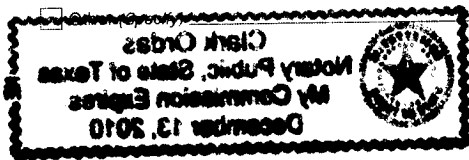 Other (Specify)
Clark Ordas
Notary Public, State of Texas
My Commission Expires
December 13, 2010